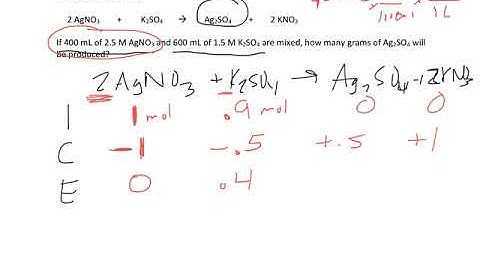 1000ml 1L
2 AgNO₃ + K₂SO₄ → Ag₂SO₄ + 2 KNO₃
If 400 mL of 2.5 M AgNO₃ and 600 mL of 1.5 M K₂SO₄ are mixed, how many grams of Ag₂SO₄ will
be produced?
2AgNO₃ + K₂SO₄ → Ag₂SO₄ + 2KNO₃
I 1 mol .9 mol 0 0
C -1 -.5 +.5 +1
E 0 .4